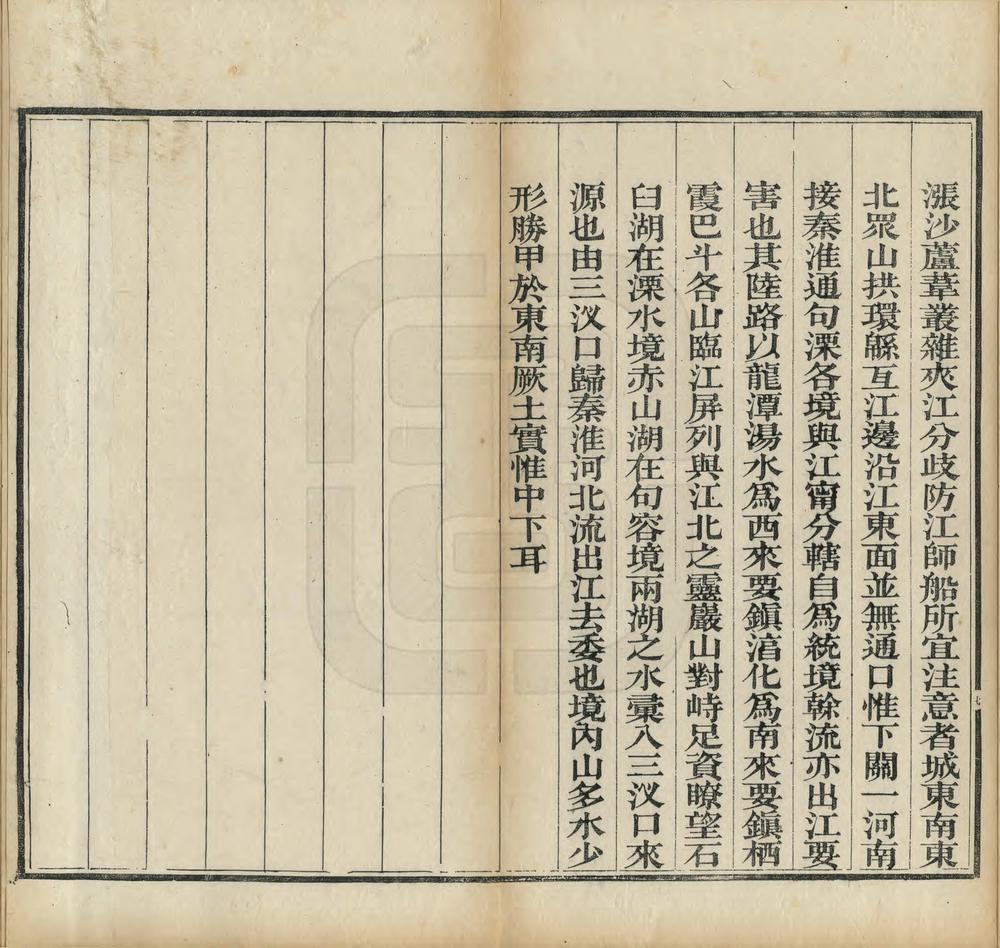 漲沙蘆葦叢雜夾江分歧防江師船所宜注意者城東南東
北眾山拱環緜互江邊沿江東面並無通口惟下關一河南
接秦淮通句溧各境與江甯分轄自爲統境榦流亦出江要
害也其陸路以龍潭湯水爲西來要鎮湻化爲南來要鎮栖
霞巴斗各山臨江屏列與江北之靈巖山對峙足資瞭望石
臼湖在溧水境赤山湖在句容境兩湖之水彚入三汊口來
源也由三汊口歸秦淮河北流出江去委也境內山多水少
形勝甲於東南厥土實惟中下耳